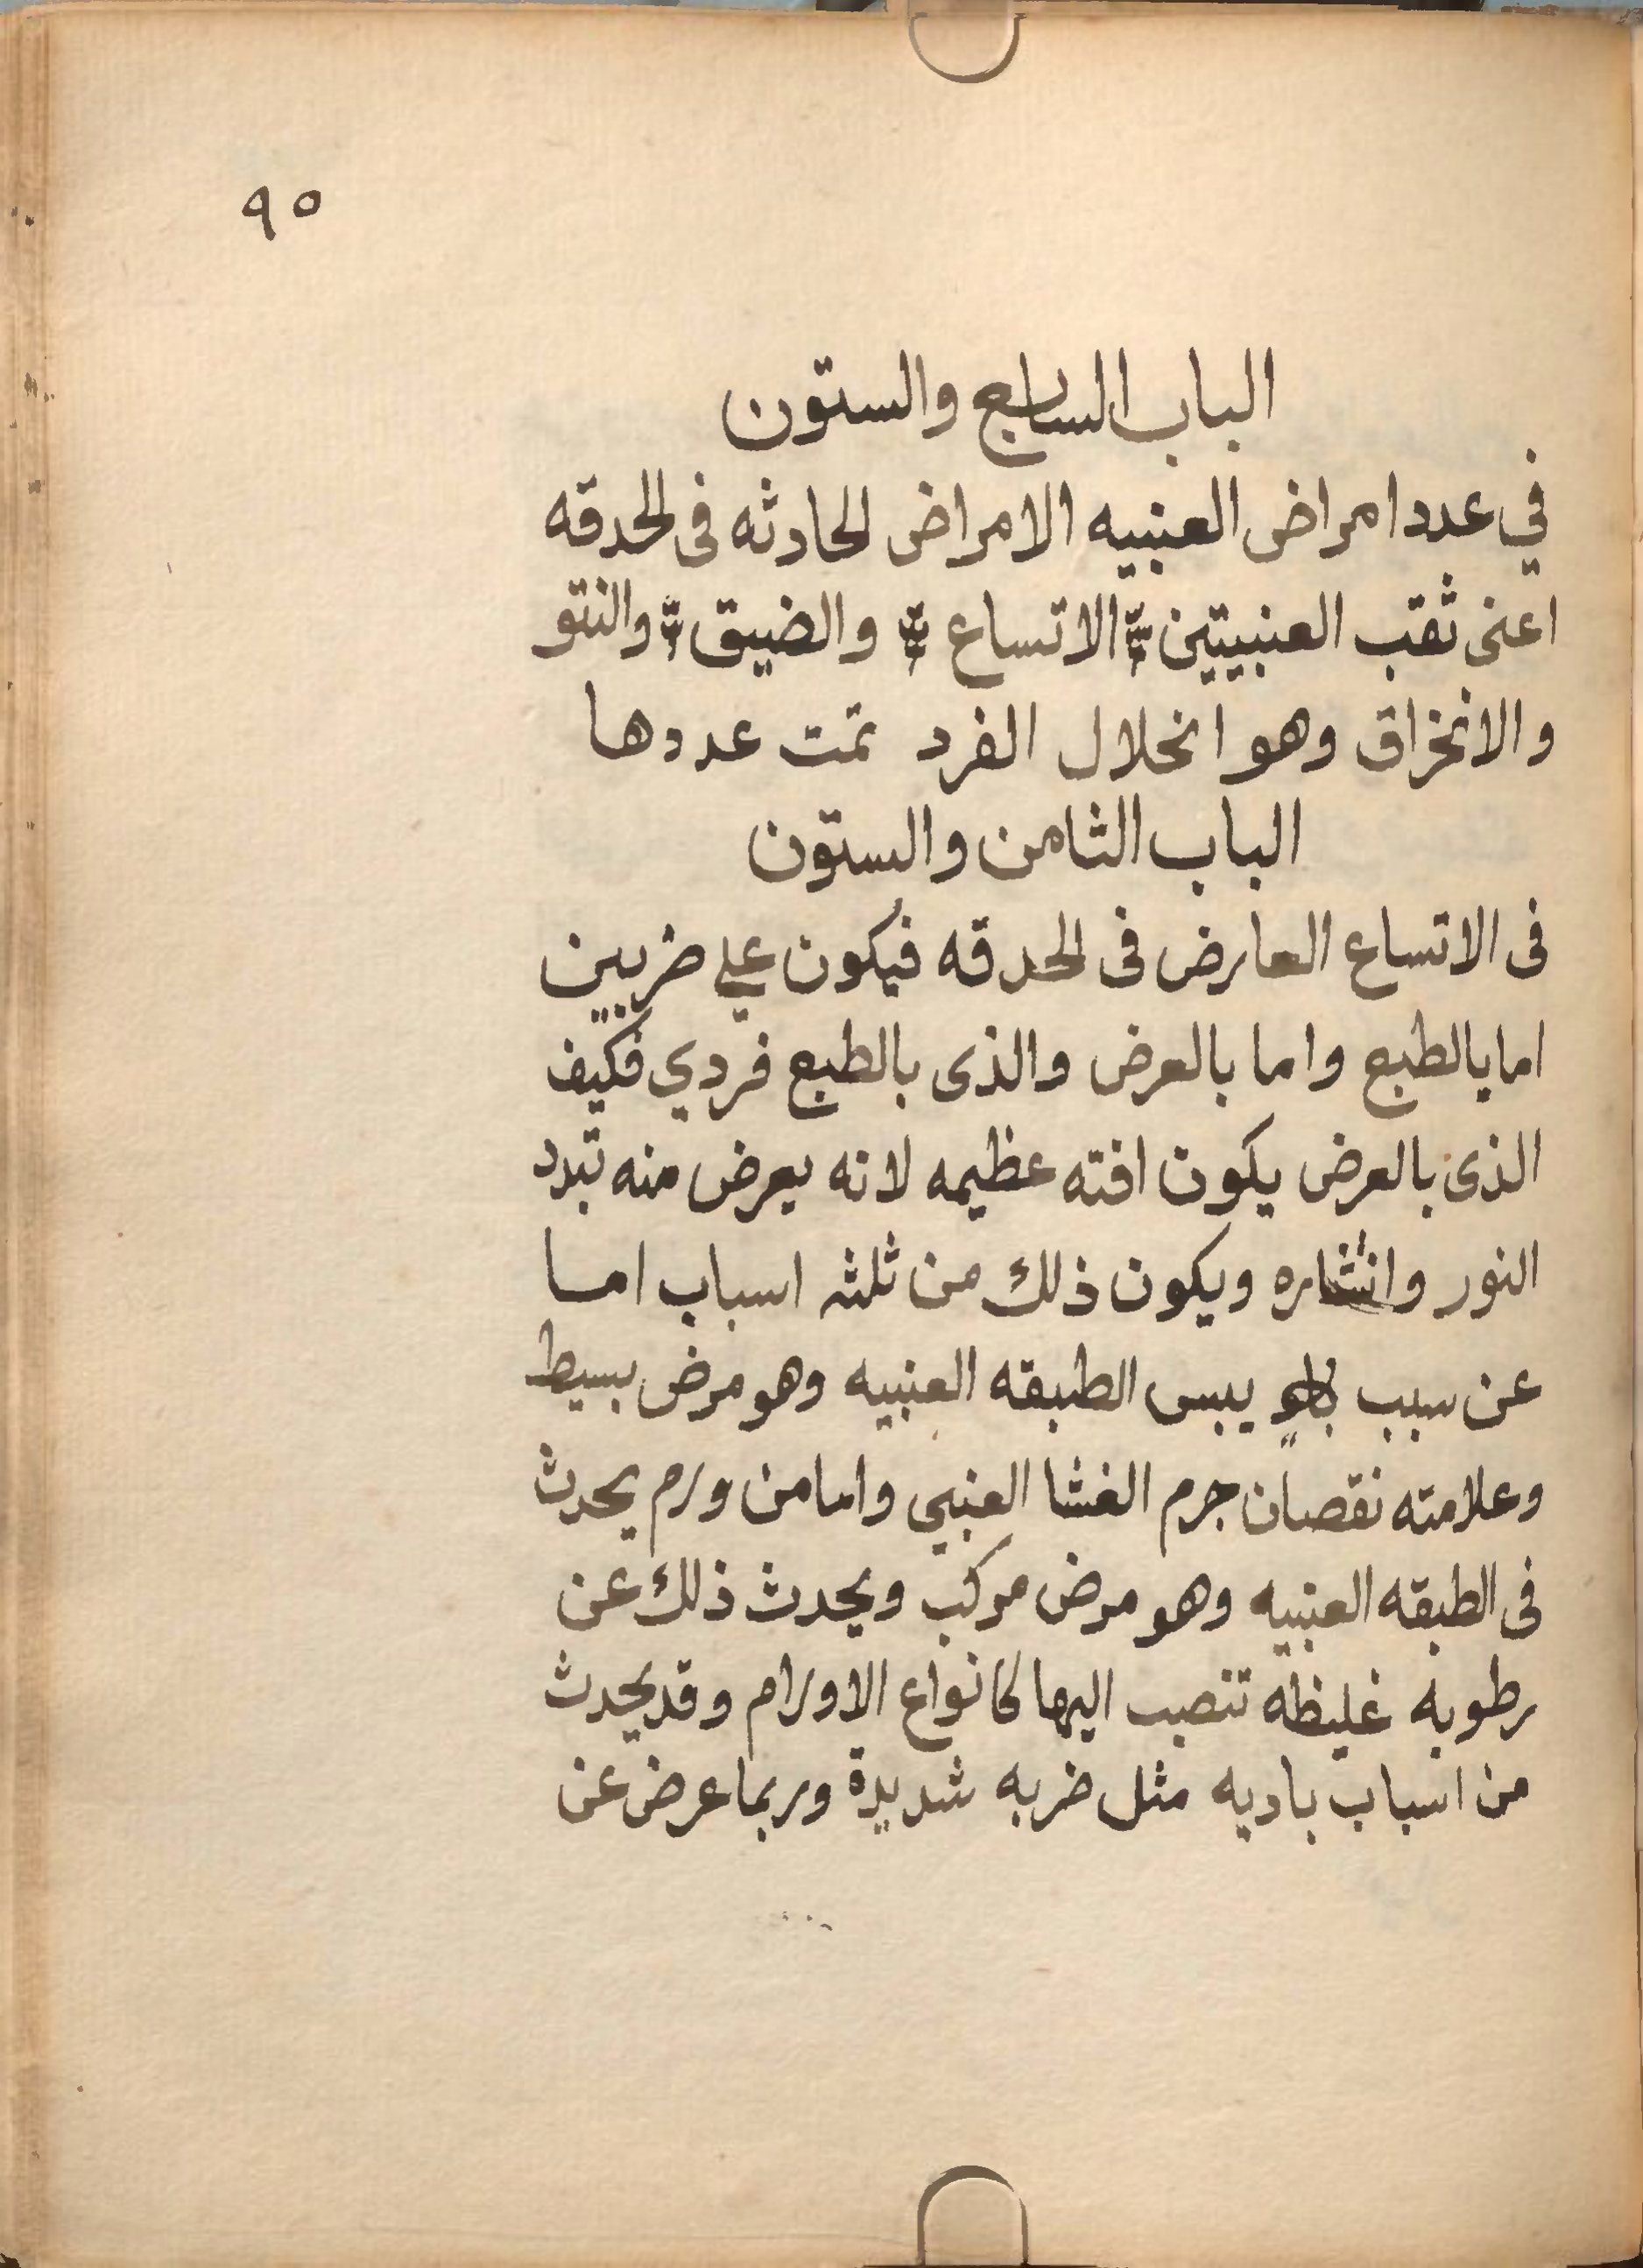 ٩٥
الباب السابع والستون
في عدد امراض العنبيه الامراض الحادثه فى الحدقه
اعنى ثقب العنبيتين الاتساع والضيق والنتو
والانخراق وهو انحلال الفرد تمت عددها
الباب الثامن والستون
فى الاتساع العارض فى الحدقه فيكون علي ضربين
اما بالطبع واما بالعرض والذى بالطبع فردي فكيف
الذى بالعرض يكون افته عظيمه لانه يعرض منه تبدد
النور وانتشاره ويكون ذلك من ثلثه اسباب اما
عن سبب يبس الطبقه العنبيه وهو مرض بسيط
وعلامته نقصان جرم الغشا العنبي واما من ورم يحدث
فى الطبقه العنبيه وهو مرض مركب ويحدث ذلك عن
رطوبه غليظه تنصب اليها كانواع الاورام وقد يحدث
من اسباب باديه مثل ضربه شديدة وربما عرض عن